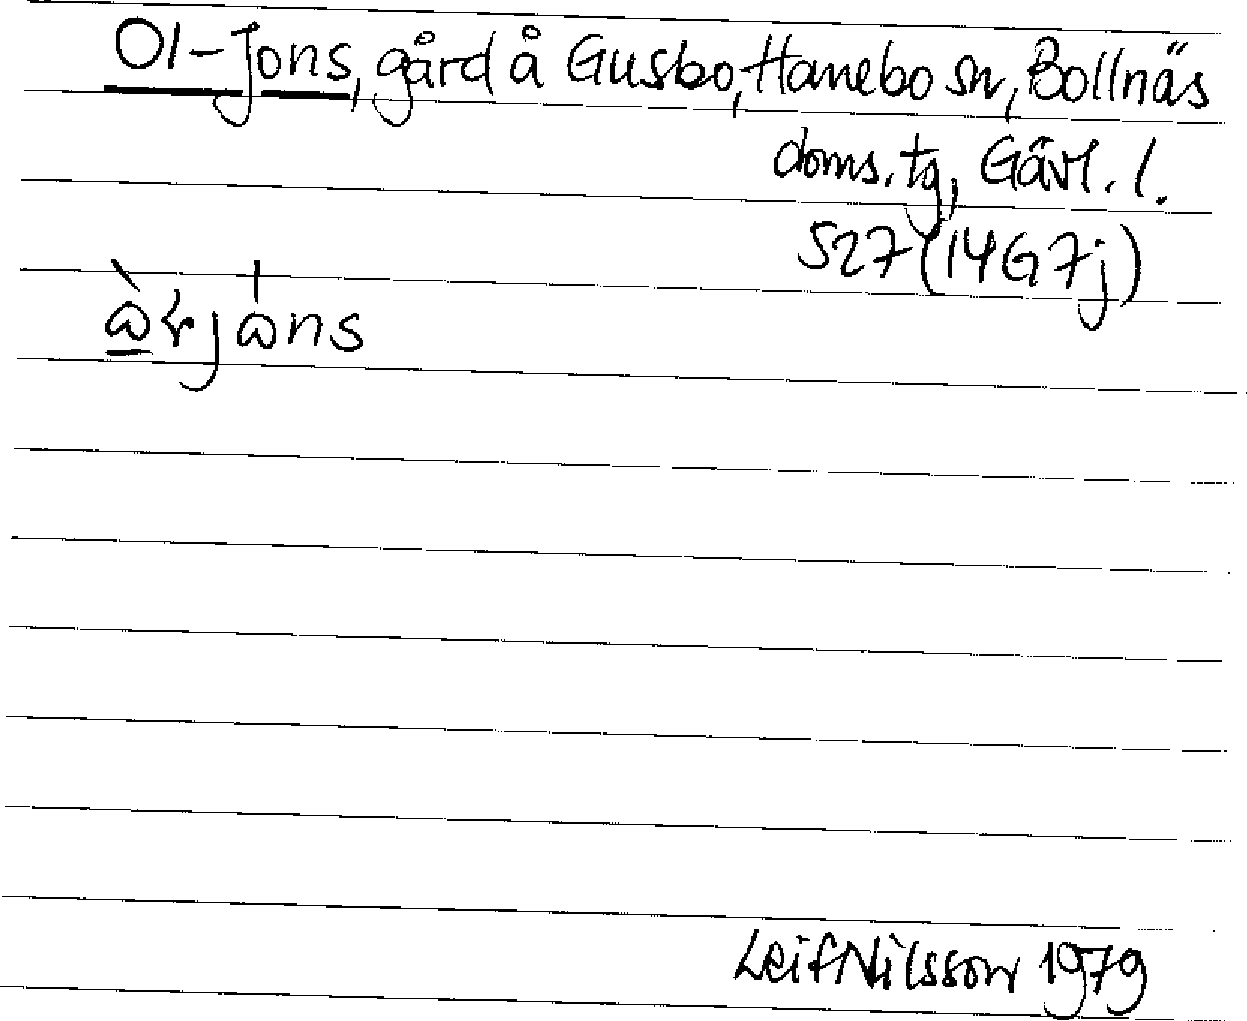 Ol-Jons, gård å Gusbo, Hanebo sn, Bollnäs
doms. tg, Gävl. l.
S27 (14G 7j)
Leif Nilsson 1979